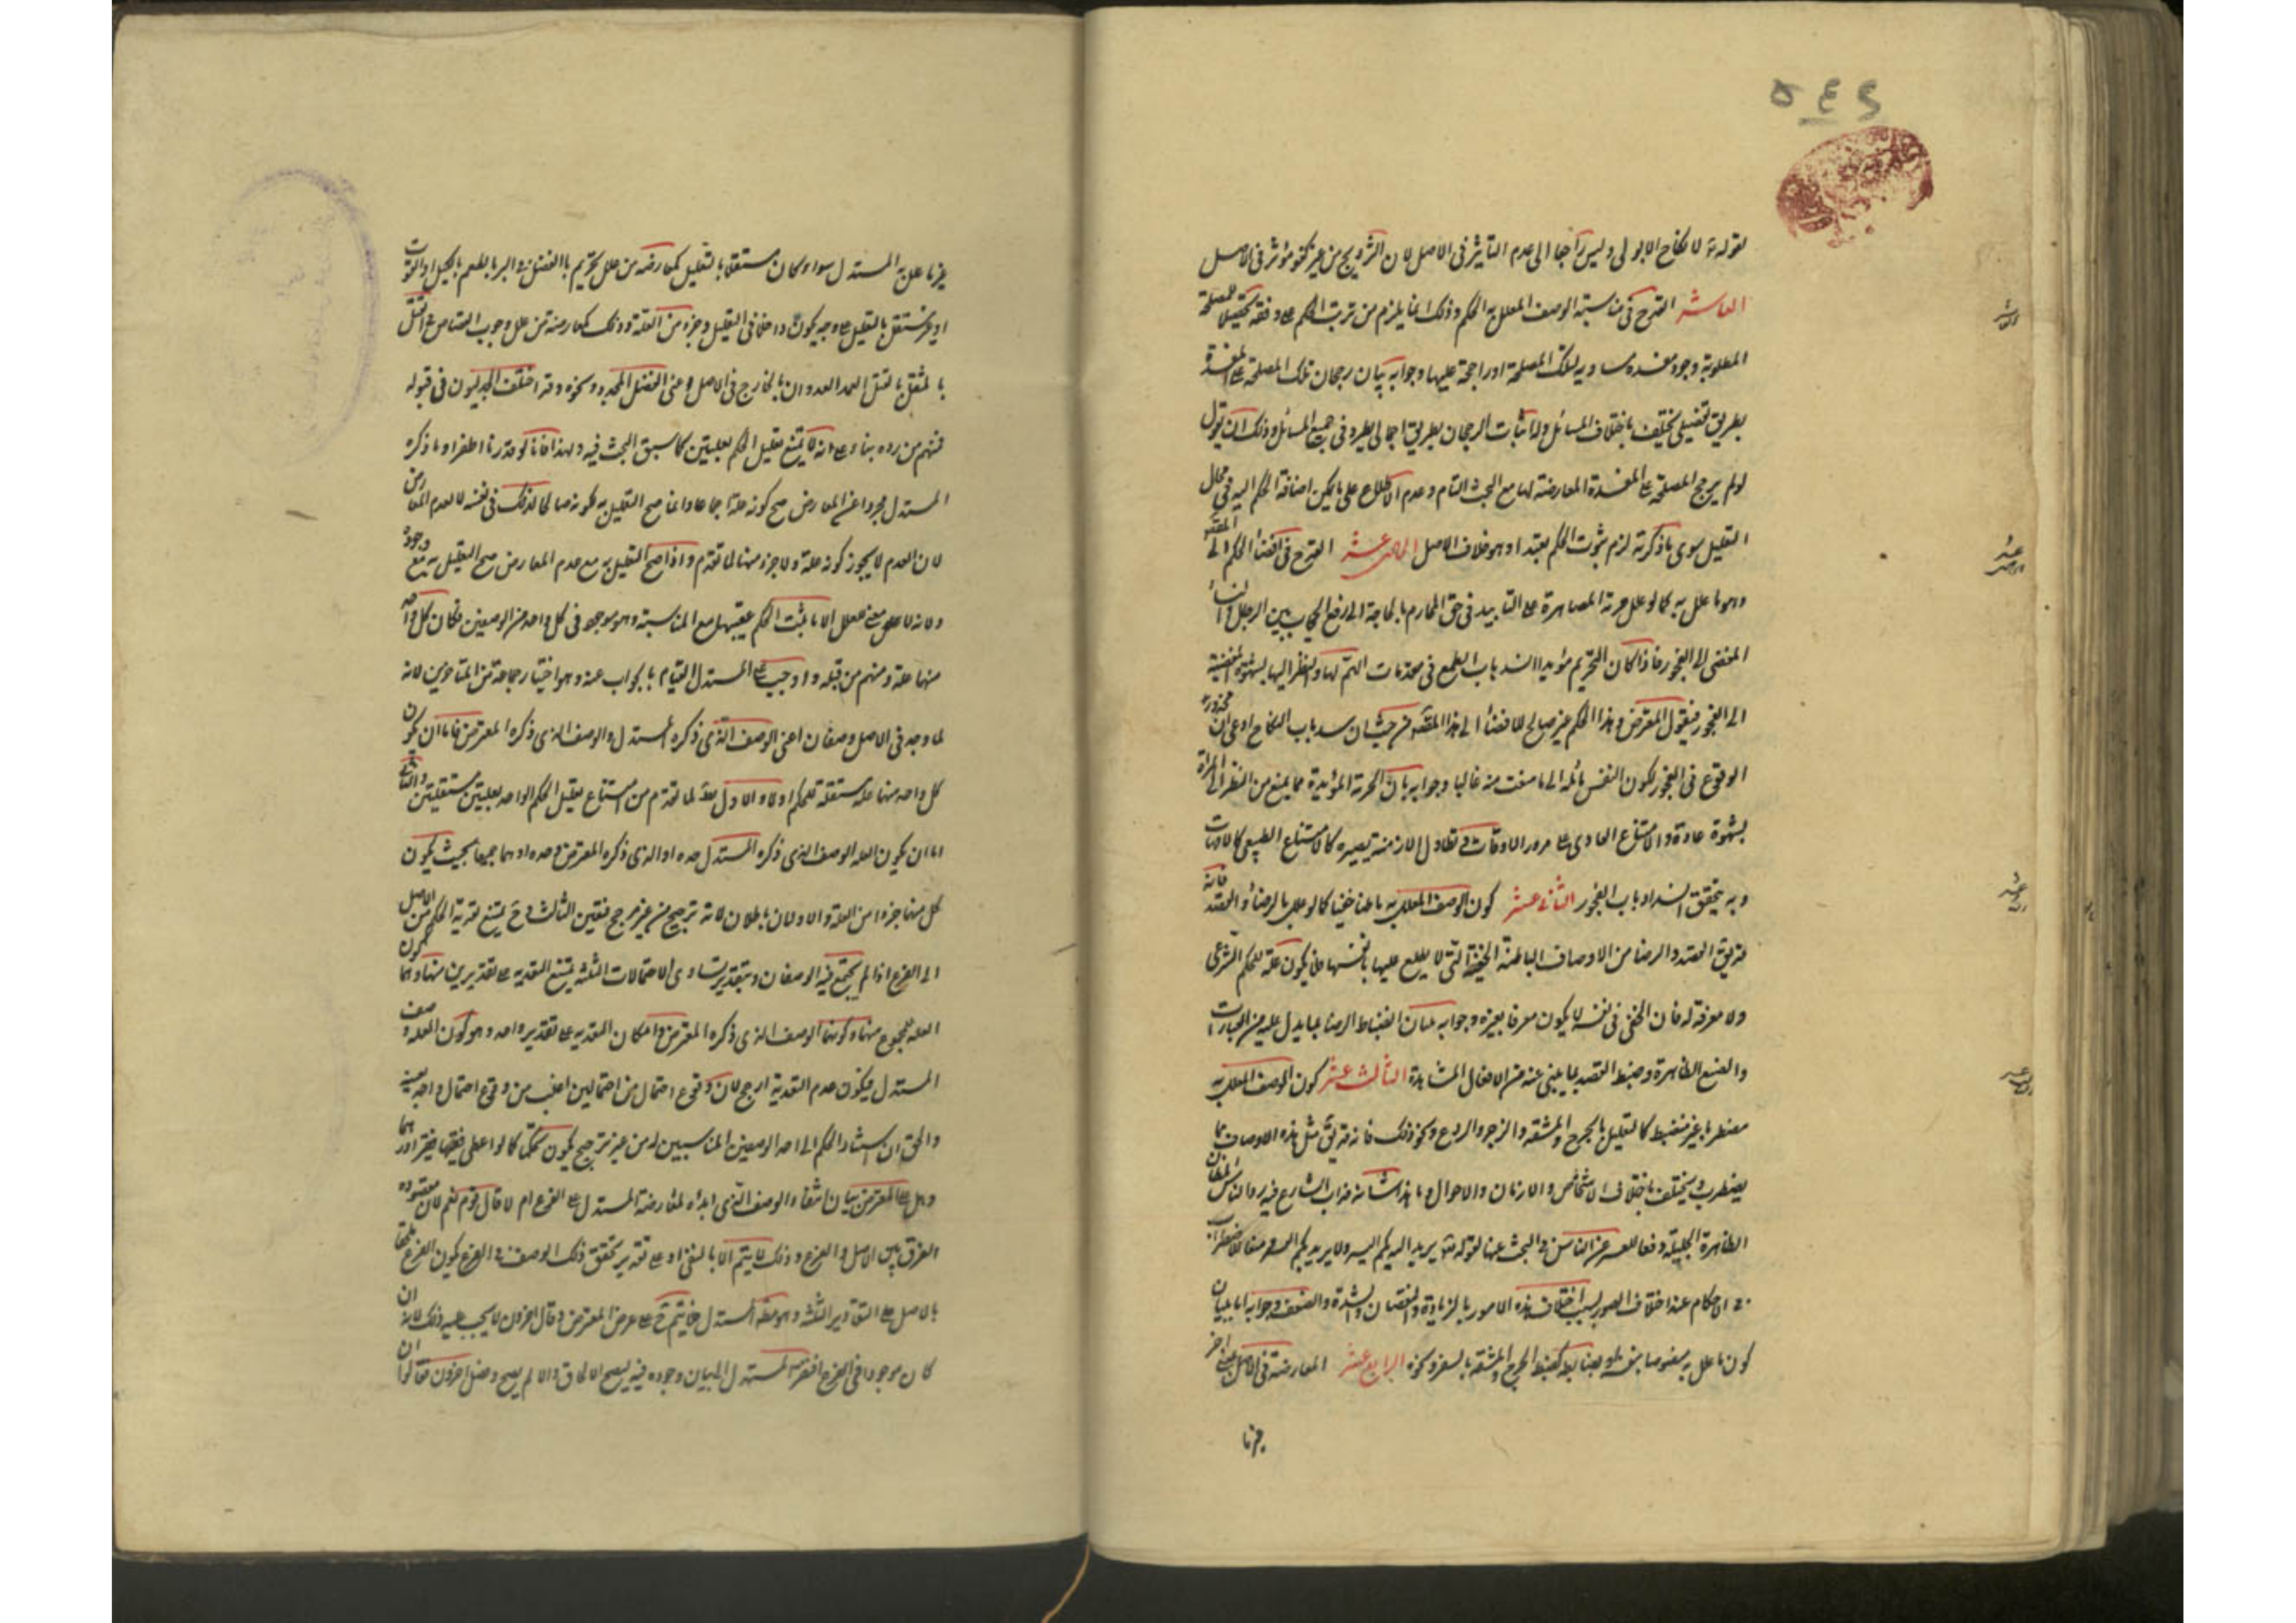 ٥٤٩
لقوله ع لا نكاح الا بولى وليس راجعا الى عدم التاثير فى الاصل لان التزويج من غير كفو مؤثر فى الاصل
العاشر القدح فى مناسبة الوصف المعلل به الحكم وذلك انما يلزم من ترتب الحكم على وفقه تحصيلا للمصلحة
المطلوبة وجود مفسدة مساوية لتلك المصلحة او راجحة عليها وجوابه ببيان رجحان تلك المصلحة على المفسدة
بطريق تفصيلى يختلف باختلاف المسائل ولاثبات الرجحان بطريق اجمالى يطرد فى جميع المسائل وذلك ان يقول
لو لم يرجح المصلحة على المفسدة المعارضة لها مع البحث التام وعدم الاطلاع على ما يمكن اضافة الحكم اليه فى محل
التعليل سوى ما ذكرته لزم ثبوت الحكم تعبدا وهو خلاف الاصل الحادى عشر القدح فى افضاء الحكم الى المقصود
وهو ما علل به كما لو علل حرمة المصاهرة على التابيد فى حق المحارم بالحاجة الى رفع الحجاب بين الرجال والنساء
المفضى الى الفجور فاذا كان التحريم مؤبدا انسد باب الطمع فى مقدمات الهم بها والنظر اليها بشهوة المفضية
الى الفجور فيقول المعترض وهذا الحكم غير صالح للافضاء الى هذا المقصود من حيث ان سد باب النكاح ادعى الى محذور
الوقوع فى الفجور لكون النفس مائلة الى ما منعت منه غالبا وجوابه بان الحرمة المؤبدة مما يمنع من النظر الى المراة
بشهوة عادة والامتناع العادى على مرور الاوقات وتطاول الازمنة يصير كالامتناع الطبيعى كالامهات
وبه يتحقق انسداد باب الفجور الثانى عشر كون الوصف المعلل به باطنا خفيا كما لو علل بالرضا والقصد فانه
قد يق القصد والرضا من الاوصاف الباطنة الخفية التى لا يطلع عليها بانفسها فلا يكون علة للحكم الشرعى
ولا معرفة له فان الخفى فى نفسه لا يكون معرفا بغيره وجوابه بيان انضباط الرضا بما يدل عليه من العبارات
والصيغ الظاهرة وضبط القصد بما ينبى عنه من الافعال المشاهدة الثالث عشر كون الوصف المعلل به
مضطربا غير منضبط كالتعليل بالحرج والمشقة والزجر والردع ونحو ذلك فانه قد يق مثل هذه الاوصاف مما
يضطرب ويختلف باختلاف الاشخاص والازمان والاحوال وما هذا شانه فداب الشارع فيه رد الناس الى المظان
الظاهرة الجلية دفعا للعسر عن الناس فى البحث عنها لقوله تع يريد الله بكم اليسر ولا يريد بكم العسر ومنعا للاضطراب
فى الاحكام عند اختلاف الصور بسبب اختلاف هذه الامور بالزيادة والنقصان والشدة والضعف وجوابه اما ببيان
كون ما علل به مضبوطا بنفسه او بضابط كضبط الحرج والمشقة بالسفر ونحوه الرابع عشر المعارضة فى الاصل بمعنى اخر
غير ما
غير ما علل به المستدل سواء كان مستقلا بالتعليل كمعارضة من علل تحريم ربا الفضل فى البر بالطعم بالكيل او القوت
او غير مستقل بالتعليل على وجه يكون داخلا فى التعليل وجزء من العلة وذلك كمعارضة من علل وجوب القصاص فى القتل
بالمثقل بالقتل العمد العدوان بالجارح فى الاصل ونحوه وقد اختلف الجدليون فى قبوله
فمنهم من رده بناء على انه لا يمتنع تعليل الحكم بعلتين كما سبق البحث فيه ولهذا فانا لو قدرنا انفراد ما ذكره
المستدل مجردا عن المعارض صح كونه علة اجماعا وانما صح التعليل به لكونه صالحا لذلك فى نفسه لا لعدم المعارض
لان العدم لا يجوز كونه علة ولا جزء منها لما تقدم واذا صح التعليل به مع عدم المعارض صح التعليل به مع وجوده
ولانه لا معنى للعلة الا ما ثبت الحكم عقيبها مع المناسبة وهو موجود فى كل واحد من الوصفين فكان كل واحد
منهما علة ومنهم من قبله واوجب على المستدل القيام بالجواب عنه وهو اختيار جماعة من المتاخرين لانه
لما وجد فى الاصل وصفان اعنى الوصف الذى ذكره المستدل والوصف الذى ذكره المعترض فاما ان يكون
كل واحد منهما علة مستقلة للحكم او لا والاول بط لما تقدم من امتناع تعليل الحكم الواحد بعلتين مستقلتين والثانى
اما ان يكون العلة الوصف الذى ذكره المستدل وحده او الذى ذكره المعترض وحده او هما جميعا بحيث يكون
كل منهما جزءا من العلة والاولان باطلان لانه ترجيح من غير مرجح فتعين الثالث وح يمتنع تعدية الحكم من الاصل
الى الفرع اذا لم يجتمع فيه الوصفان وبتقدير تساوى الاحتمالات الثلثة يمتنع التعدية على تقديرين منها وهما كون
العلة المجموع منهما وكونها الوصف الذى ذكره المعترض وامكان التعدية على تقدير واحد وهو كون العلة وصف
المستدل فيكون عدم التعدية ارجح لان وقوع احتمال من احتمالين اغلب من وقوع احتمال واحد بعينه
والحق ان اسناد الحكم الى احد الوصفين المناسبين له من غير ترجيح يكون تحكما كما لو اعطى فقيها فقيرا درهما
وهل على المعترض بيان انتفاء الوصف الذى ابداه لمعارضة المستدل فى الفرع ام لا قال قوم نعم لان مقصوده
الفرق بين الاصل والفرع وذلك لا يتم الا بالنفى او على تقدير تحقق ذلك الوصف فى الفرع يكون الفرع ملحقا
بالاصل على التقادير الثلثة وهو مقصد المستدل فلا يتم ح غرض المعترض وقال اخرون لا يجب عليه ذلك لانه ان
كان موجودا فى الفرع افتقر المستدل الى بيان وجوده فيه ليصح الالحاق والا لم يصح وفصل اخرون فقالوا ان